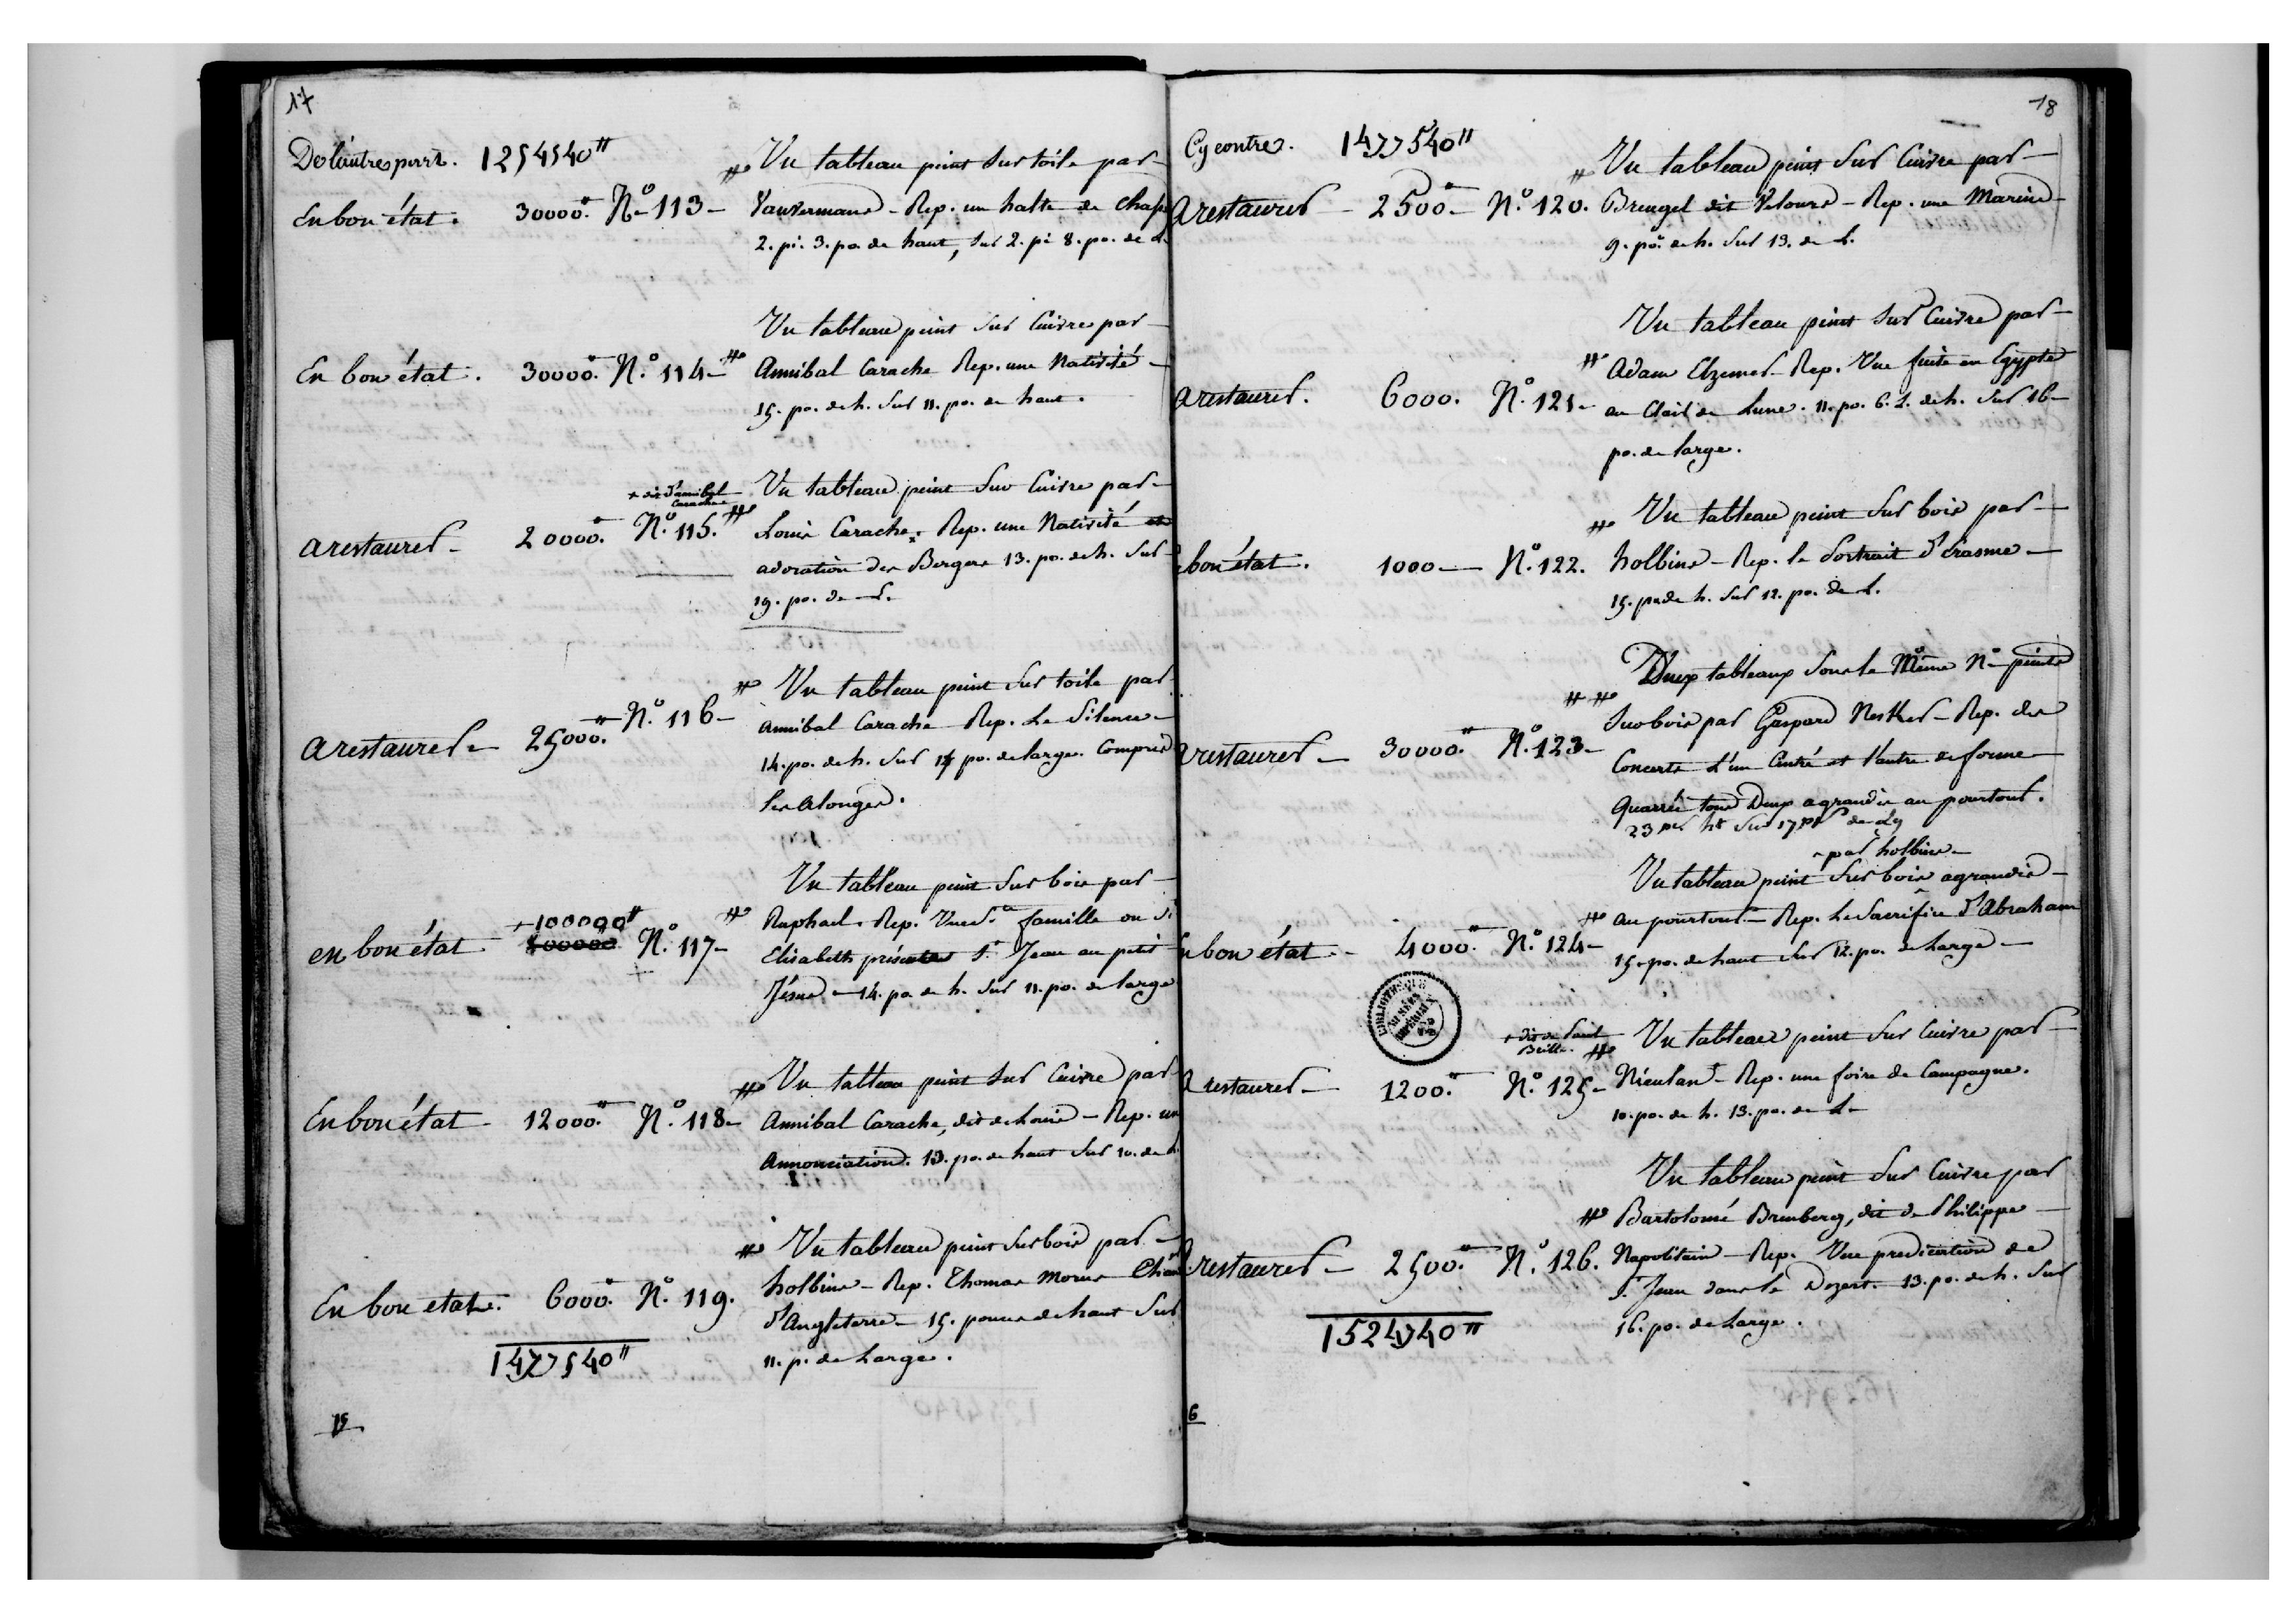 17
De l'autre part. 1254540#
Un tableau peint sur toile par
En bon état. 30000# N.º 113 Vauvermans - Rep. un halte de Chasse
2. pi. 3. po. de haut, sur 2. pi 8. po. de L.
Un tableau peint sur Cuivre par
En bon état. 30000# N.º 114 Annibal Carache Rep. une Nativité
15. po. de h. sur 11. po. de haut.
+ dit d'annibal Carache
Un tableau peint sur Cuivre par
a restaurer 20000# N.º 115. Louis Carache. Rep. une Nativité et
adoration des Bergers 13. po. de h. sur
19. po. de L.
Un tableau peint sur toile par
a restaurer 25000# N.º 116 Annibal Carache Rep. Le Silence
14. po. de h. sur 17 po. de large. Compris
les Alonges.
Un tableau peint sur bois par
+100000#
en bon état N.º 117 Raphael. Rep. Une Ste. famille ou Ste
Elisabeth présente St. Jean au petit
Jésus 14. po. de h. sur 11. po. de large
Un tableau peint sur Cuivre par
En bon état 12000# N.º 118 Annibal Carache, dit de Louis - Rep. une
Annonciation. 13. po. de haut sur 10. de L.
Un tableau peint sur bois par
En bon etat. 6000# N.º 119. holbins - Rep. Thomas Morus
d'Angleterre 15. pouces de haut sur
11. p. de Large.
1477540#
18
Cy contre. 1477540#
Un tableau peint sur Cuivre par
a restaurer 2500# N.º 120. Breugel dit Velours - Rep. une Marine
9. po. de h. sur 13. de L.
Un tableau peint sur Cuivre par
a restaurer. 6000. N.º 121 Adam Elzemer Rep. Une fuite en Egypte
au Clair de Lune. 11. po. 6. L. de h. sur 16
po. de large.
Un tableau peint sur bois par
bon état. 1000 N.º 122. holbins - Rep. le Portrait d'Erasme
15. po. de h. sur 12. po. de L.
Deux tableaux sous le Même N.º peints
sur bois par Gaspard Nesker - Rep. des
a restaurer 30000# N.º 123 Concerts l'un Cintré et l'autre de forme
Quarrée tous Deux agrandis au pourtour.
23 po. ht sur 17 po. de Lg
par holbins
Un tableau peint sur bois agrandis
au pourtour Rep. Le Sacrifice d'Abraham
En bon état 4000# N.º 124 15. po. de haut sur 12. po. de Large
BIBLIOTHEQUE
+ dit de Paul Brille.
Un tableau peint sur Cuivre par
a restaurer 1200# N.º 125 Nieulant - Rep. une foire de Campagne.
10. po. de h. 13. po. de L
Un tableau peint sur Cuivre par
Bartolomé Brenberg, dit de Philippe
a restaurer 2500# N.º 126. Napolitain - Rep. Une predication de
St. Jean dans le Dezert. 13. po. de h. sur
16. po. de Large.
1524740#